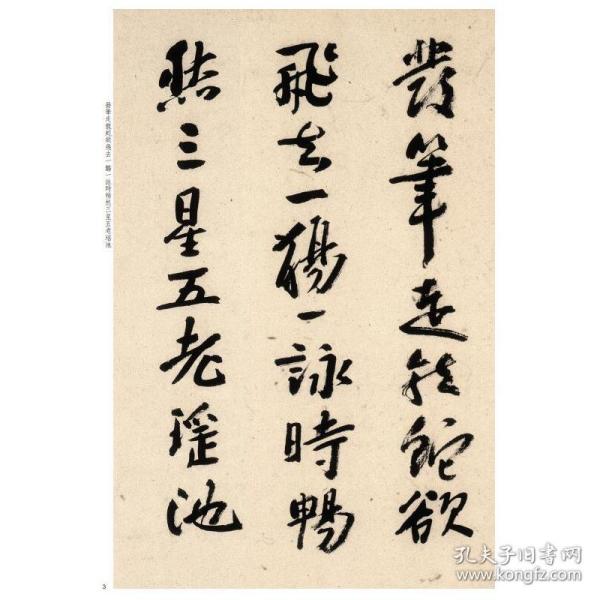 發筆走龍蛇欲
飛去一觴一詠時暢
然三星五老瑤池
發筆走龍蛇欲飛去一觴一詠時暢然三星五老瑤池
3
孔夫子旧书网
www.kongfz.com